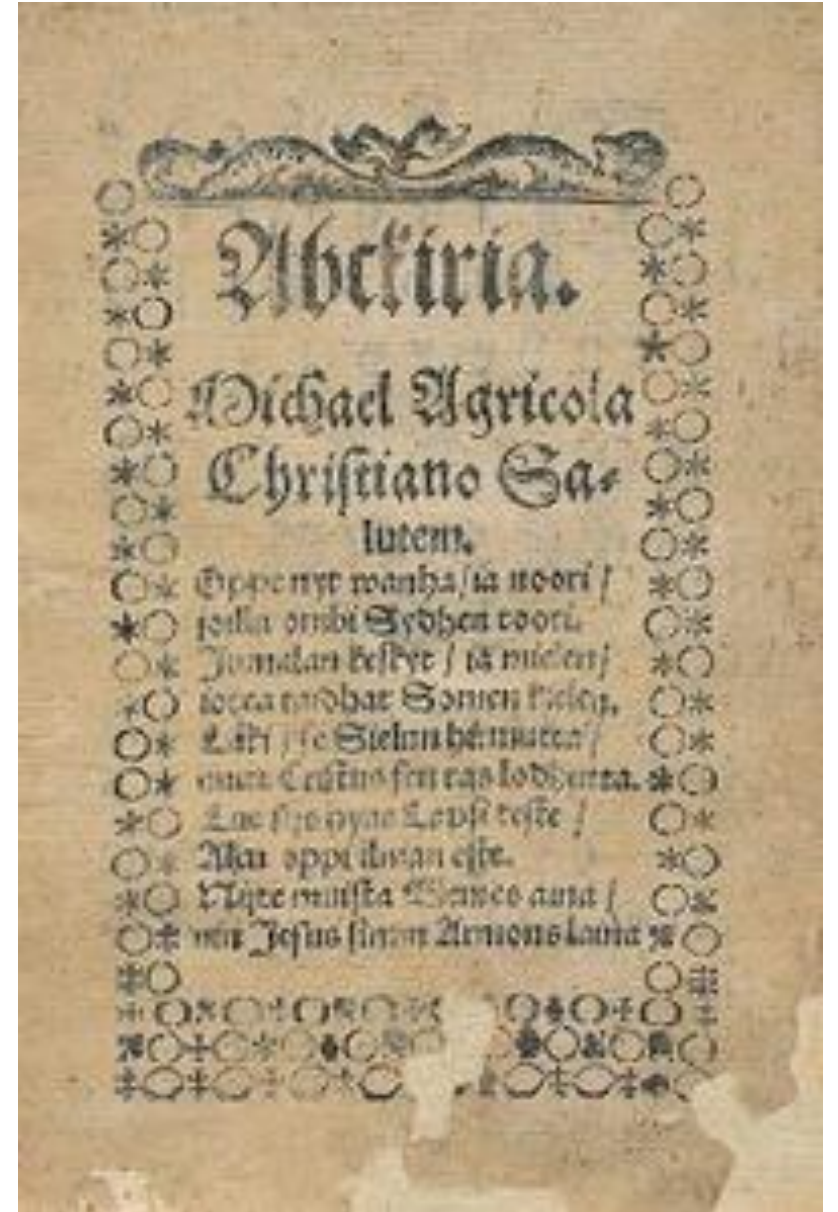 Abckiria.
Michael Agricola
Christiano Sa⸗
lutem.
Oppe nyt wanha / ia noori /
joilla ombi Sydhen toori.
Jumalan keskyt / ia mielen /
iotca taidhat Somen kielen.
Laki / se Sielun hirmutta /
mutta Cristus sen tas lodhutta.
Lue sijs hyue Lapsi teste /
Alcu oppi ilman este.
Nijte muista Elemes aina /
nin Jesus sinun Armons laina